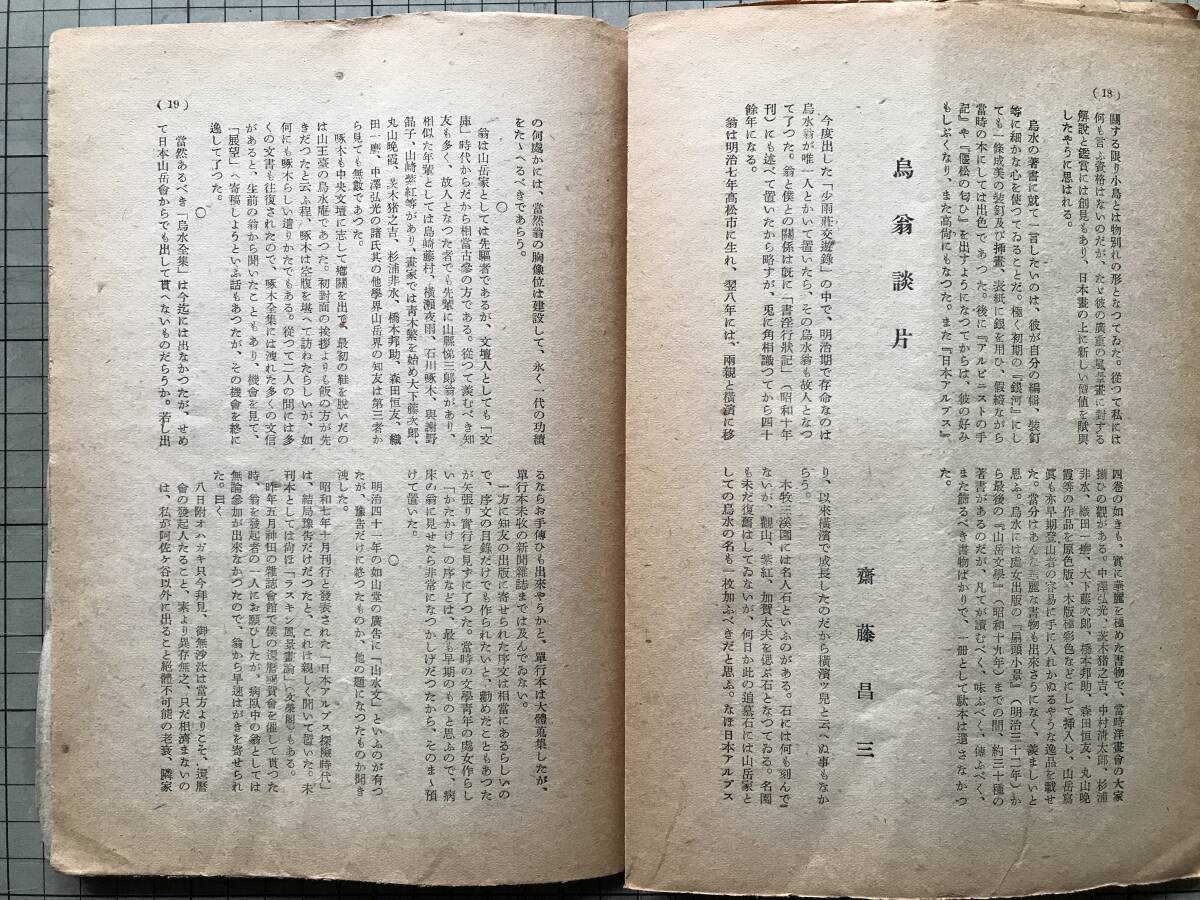 (18)
關する限り小島とは物別れの形となつてゐた。從つて私には
何も言ふ資格はないのだが、たゞ彼の廣重の風景畫に對する
解說と鑑賞には創見もあり、日本畫の上に新しい價値を賦與
したやうに思はれる。
烏水の著書に就て一言したいのは、彼が自分の編輯、裝釘
等に細かな心を使つてゐることだ。極く初期の『銀河』にし
ても一條成美の裝釘及び挿畫、表紙に銀を用ひ、假綴ながら
當時の本にしては出色であつた。後に『アルピニストの手
記』や『偃松の匂ひ』を出すようになつてからは、彼の好み
もしぶくなり、また高尙にもなつた。また『日本アルプス』
四卷の如きも、實に華麗を極めた書物で、當時洋畫會の大家
揃ひの觀がある。中澤弘光、茨木猪之吉、中村淸太郎、杉浦
非水、織田一磨、大下藤次郎、橋本邦助、森田恒友、丸山晚
霞等の作品を原色版、木版極彩色などにして挿入し、山岳寫
眞も亦早期登山者の容易に手に入れかぬるやうな逸品を載せ
た。當分はあんな華麗な書物も出來さうになく、羨ましいと
思ふ。烏水には處女出版の『扇頭小景』(明治三十二年)か
ら最後の『山岳文學』(昭和十九年)までの間、約三十種の
著書があるのだが、凡てが讀むべく、味ふべく、傳ふべく、
また飾るべき書物ばかりで、一冊として駄本は遺さなかつ
た。
烏翁談片
齋藤昌三
今度出した「少雨莊交遊錄」の中で、明治期で存命なのは
烏水翁が唯一人とかいて置いたら、その烏水翁も故人となつ
て了つた。翁と僕との關係は旣に「書淫行狀記」(昭和十年
刊)にも述べて置いたから略すが、兎に角相識つてから四十
餘年になる。
翁は明治七年高松市に生れ、翌八年には、兩親と橫濱に移
り、以來橫濱で成長したのだから橫濱ッ兒と云へぬ事もなか
らう。
本牧三溪園には名人石といふのがある。石には何も刻んで
ないが、觀山、紫紅、加賀太夫を偲ぶ石となつてゐる。名園
も未だ復舊はしてゐないが、何日か此の追墓石には山岳家と
しての烏水の名も一枚加ふべきだと思ふ。なほ日本アルプス
(19)
の何處かには、當然翁の胸像位は建設して、永く一代の功績
をたゝへるべきであらう。
○
翁は山岳家としては先驅者であるが、文壇人としても「文
庫」時代からだから相當古參の方である。從つて羨むべき知
友も多く、故人となつた者でも先輩に山縣悌三郎翁があり、
相似た年輩としては島崎藤村、橫瀨夜雨、石川啄木、與謝野
晶子、山崎紫紅等があり、畫家では靑木繁を始め大下藤次郎、
丸山晚霞、茨木猪之吉、杉浦非水、橋本邦助、森田恒友、織
田一磨、中澤弘光の諸氏其の他學界山岳界の知友は第三者か
ら見ても無數であつた。
啄木も中央文壇に志して鄉關を出で、最初の鞋を脫いだの
は山王臺の烏水庵であつた。初對面の挨拶よりも飯の方が先
きだつたと云ふ程、啄木は空腹を堪へて訪ねたらしいが、如
何にも啄木らしい遣りかたでもある。從つて二人の間には多
くの文書も往復されたので、啄木全集には洩れた多くの文信
があると、生前の翁から聞いたこともあり、機會を見て、
「展望」へ寄稿しようといふ話もあつたが、その機會を終に
逸して了つた。
○
當然あるべき「烏水全集」は今迄には出なかつたが、せめ
て日本山岳會からでも出して貰へないものだらうか。若し出
るならお手傳ひも出來やうかと、單行本は大體蒐集したが、
單行本未收の新聞雜誌までは及んでゐない。
一方に知友の出版に寄せられた序文は相當にあるらしいの
で、序文の目錄だけでも作られたいと、勸めたこともあつた
が矢張り實行を見ずに了つた。當時の文學靑年の處女作らし
い「かたかけ」の序などは、最も早期のものと思ふので、病
床の翁に見せたら非常になつかしげだつたから、そのまゝ預
けて置いた。
○
明治四十一年の如山堂の廣告に「山水文」といふのが有つ
たが、豫告だけに終つたものか、他の題になつたものか聞き
洩した。
昭和七年十月刊行と發表された「日本アルプス探險時代」
は、結局豫告だけだつたと、これは親しく聞いて置いた。未
刊本としては尙ほ「ラスキン風景畫論」(友榮閣)もある。
昨年五月神田の雜誌會館で僕の還曆祝賀會を催して貰つた
時、翁を發起者の一人にお願ひしたが、病臥中の翁としては
無論參加が出來なかつたので、翁から早速はがきを寄せられ
た。曰く
八日附オハガキ只今拜見、御無沙汰は當方よりこそ、還曆
會の發起人たること、素より異存無之、只だ相濟まないの
は、私が阿佐ヶ谷以外に出ること絕體不可能の老衰、隣家